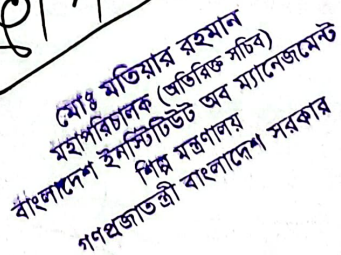 মোঃ মতিয়ার রহমান
মহাপরিচালক (অতিরিক্ত সচিব)
বাংলাদেশ ইনস্টিটিউট অব ম্যানেজমেন্ট
শিল্প মন্ত্রণালয়
গণপ্রজাতন্ত্রী বাংলাদেশ সরকার